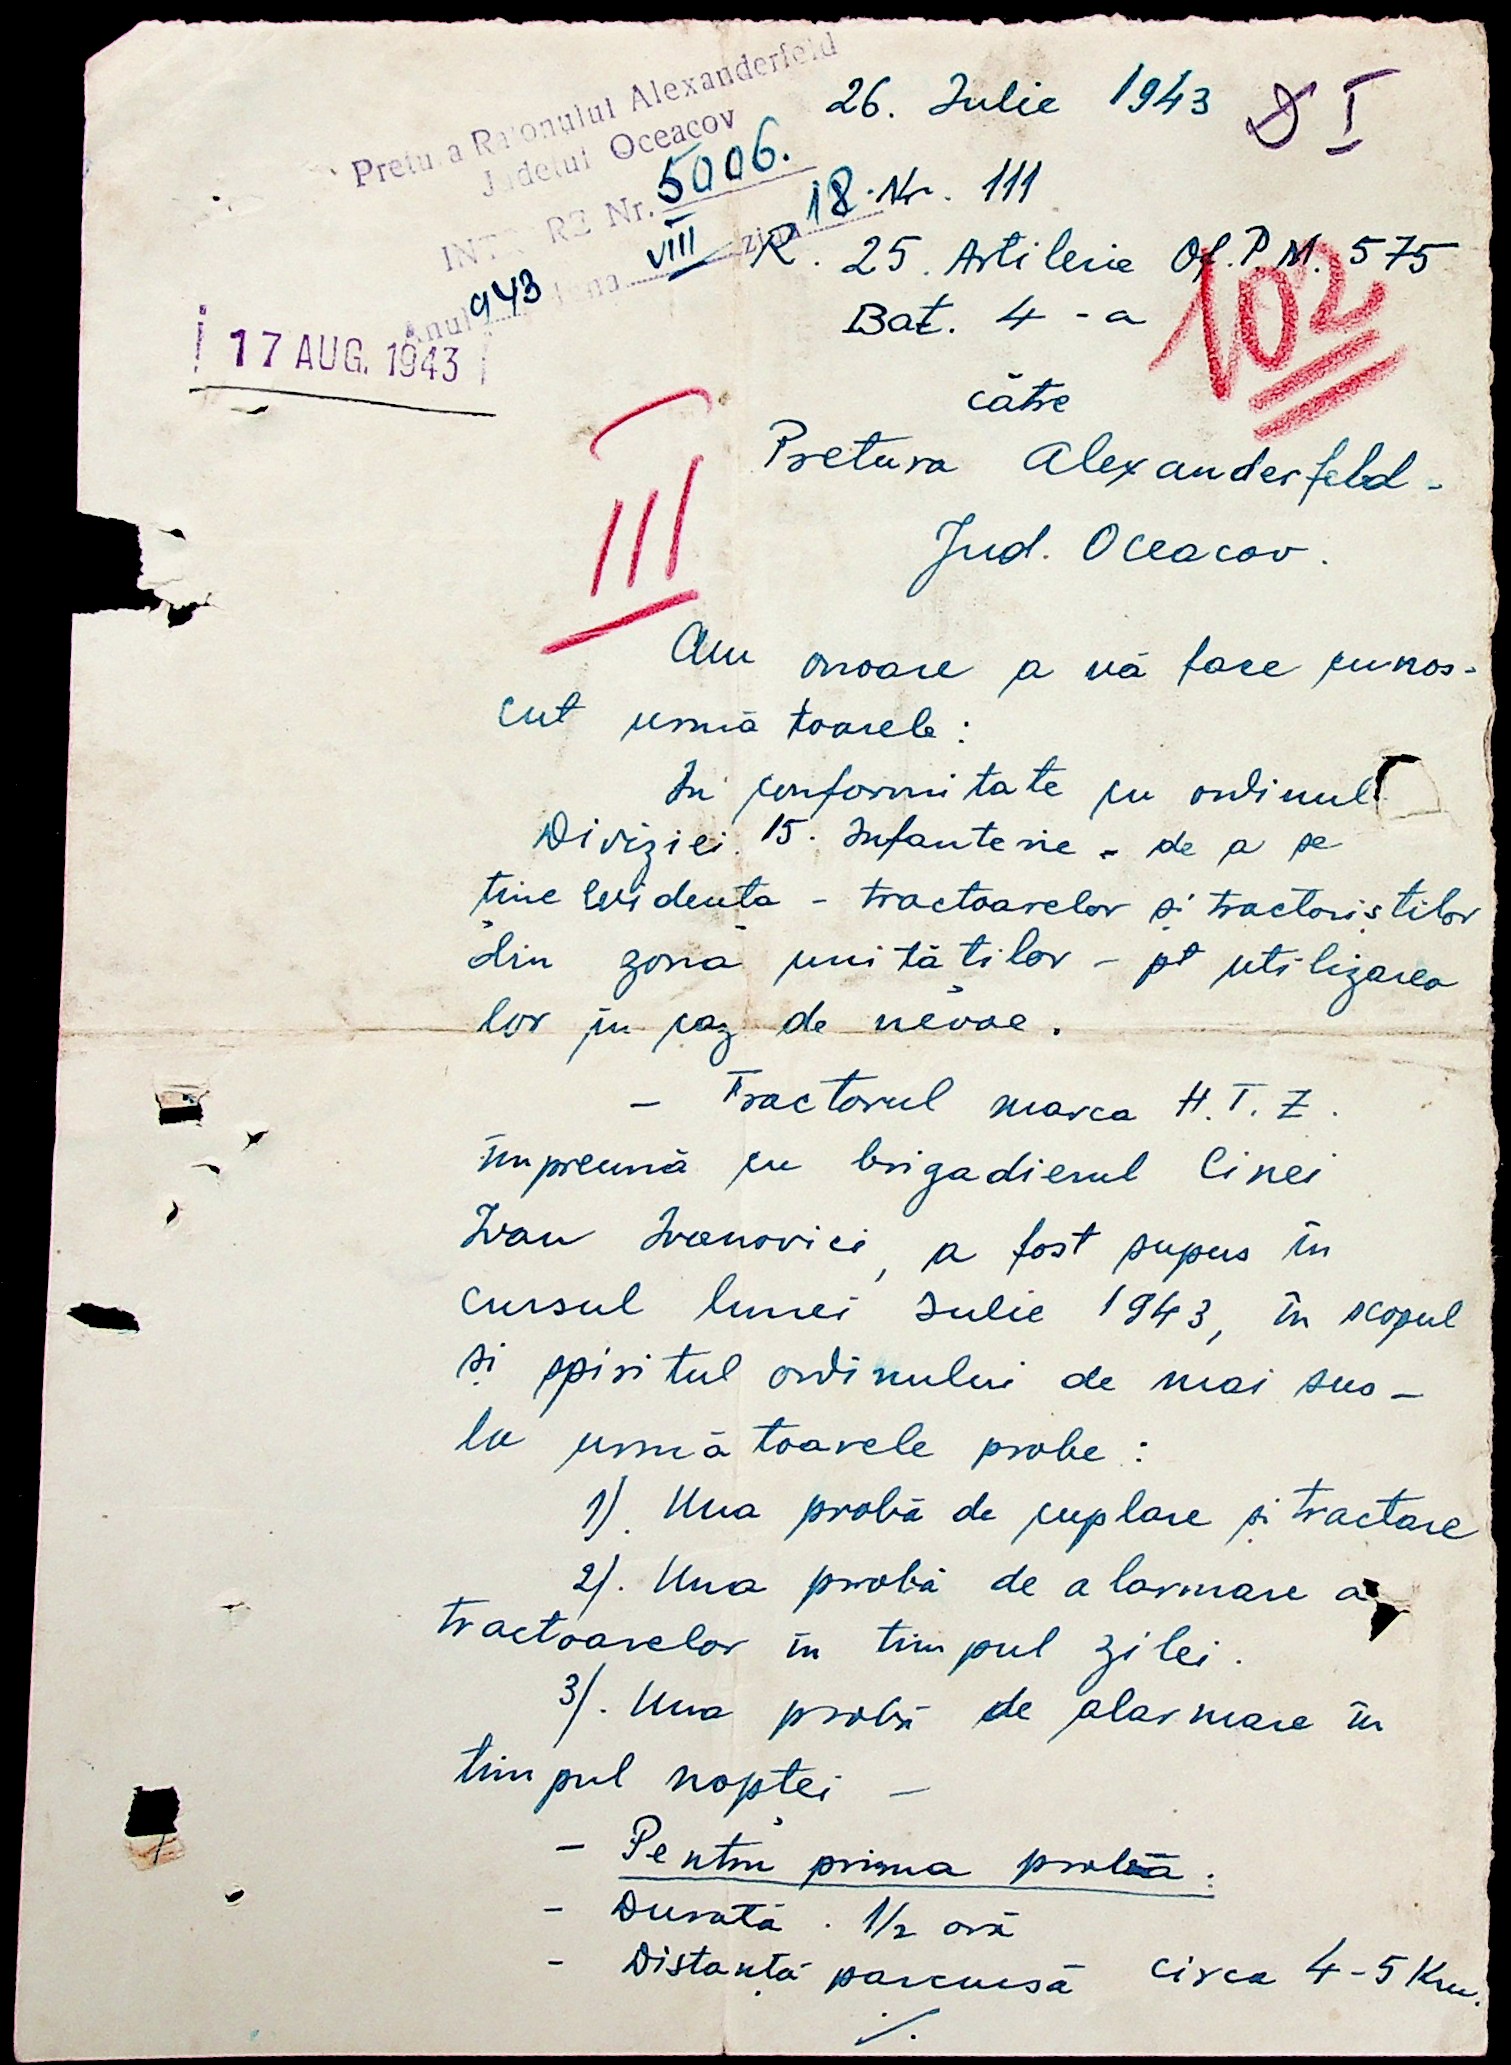 Pretura Raionului Alexanderfeld
Judetul Oceacov
INTRARE Nr. 5006.
Anul 943 luna VIII ziua 18
17 AUG. 1943
26. Iulie 1943
I
Nr. 111
R. 25. Artilerie Of. P. M. 575
Bat. 4 - a
102
către
Pretura Alexanderfeld -
Jud. Oceacov.
III
Am onoare a vă face cunos-
cut următoarele:
In conformitate cu ordinul
Diviziei. 15. Infanterie - de a se
ține evidența - tractoarelor și tractoriștilor
din zona unităților - pt utilizarea
lor în caz de nevoe.
- Tractorul marca H. T. Z.
împreună cu brigadierul Cinei
Ivan Ivanovici, a fost supus în
cursul lunei Iulie 1943, în scopul
și spiritul ordinului de mai sus -
la următoarele probe:
1). Una probă de cuplare și tractare
2). Una probă de alarmare a
tractoarelor în timpul zilei.
3). Una probă de alarmare în
timpul nopței -
- Pentru prima probă:
- Durată. 1/2 oră
- Distanță parcursă circa 4-5 Km.
./.